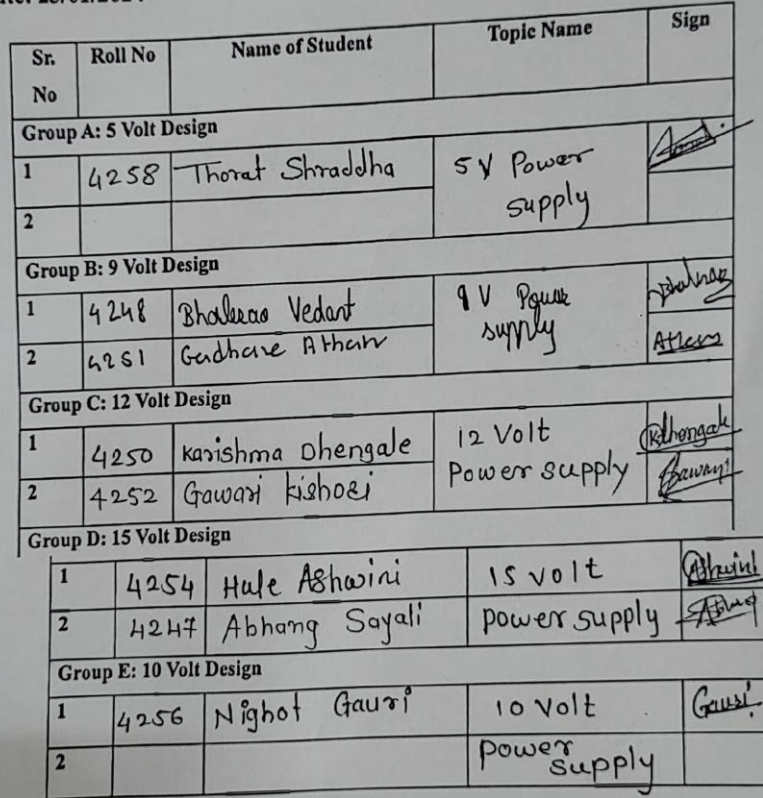 Sr. No Roll No Name of Student Topic Name Sign
Group A: 5 Volt Design
1 4258 Thorat Shraddha 5 V Power supply
2
Group B: 9 Volt Design
1 4248 Bhalerao Vedant 9 V Power supply
2 4251 Gadhave Atharv Atharv
Group C: 12 Volt Design
1 4250 Karishma Dhengale 12 Volt Power supply KDhengale
2 4252 Gawari Kishori Gawari
Group D: 15 Volt Design
1 4254 Hule Ashwini 15 volt Ashwini
2 4247 Abhang Sayali power supply
Group E: 10 Volt Design
1 4256 Nighot Gauri 10 Volt Gauri
2 power supply